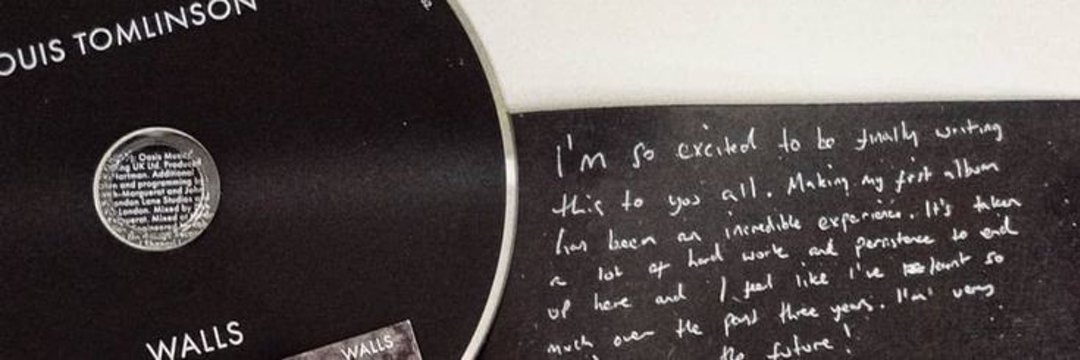 OUIS TOMLINSON
Oasis Music
ing UK Ltd. Produced
Hartman. Additional
and programming by
Marguerat and John
London Lane Studios
London. Mixed by
uerat. Mixed at
Engineered
WALLS
WALLS
I'm so excited to be finally writing
this to you all. Making my first album
has been an incredible experience. It's taken
a lot of hard work and persistence to end
up here and I feel like I've learnt so
much over the past three years. I'm very
the future!